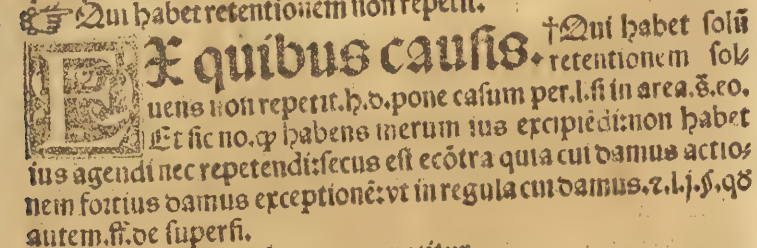 ☞ Qui habet retentionem non repetit.
EX quibus causis. †Qui habet solũ
retentionem sol-
uens non repetit.h.d.pone casum per.l.si in area.s̃.eo.
Et sic no.ꝙ habens merum ius excipiẽdi:non habet
ius agendi nec repetendi:secus est ecõtra quia cui damus actio-
nem fortius damus exceptionẽ:vt in regula cui damus.⁊.l.j.§.qđ
autem.ff.de superfi.